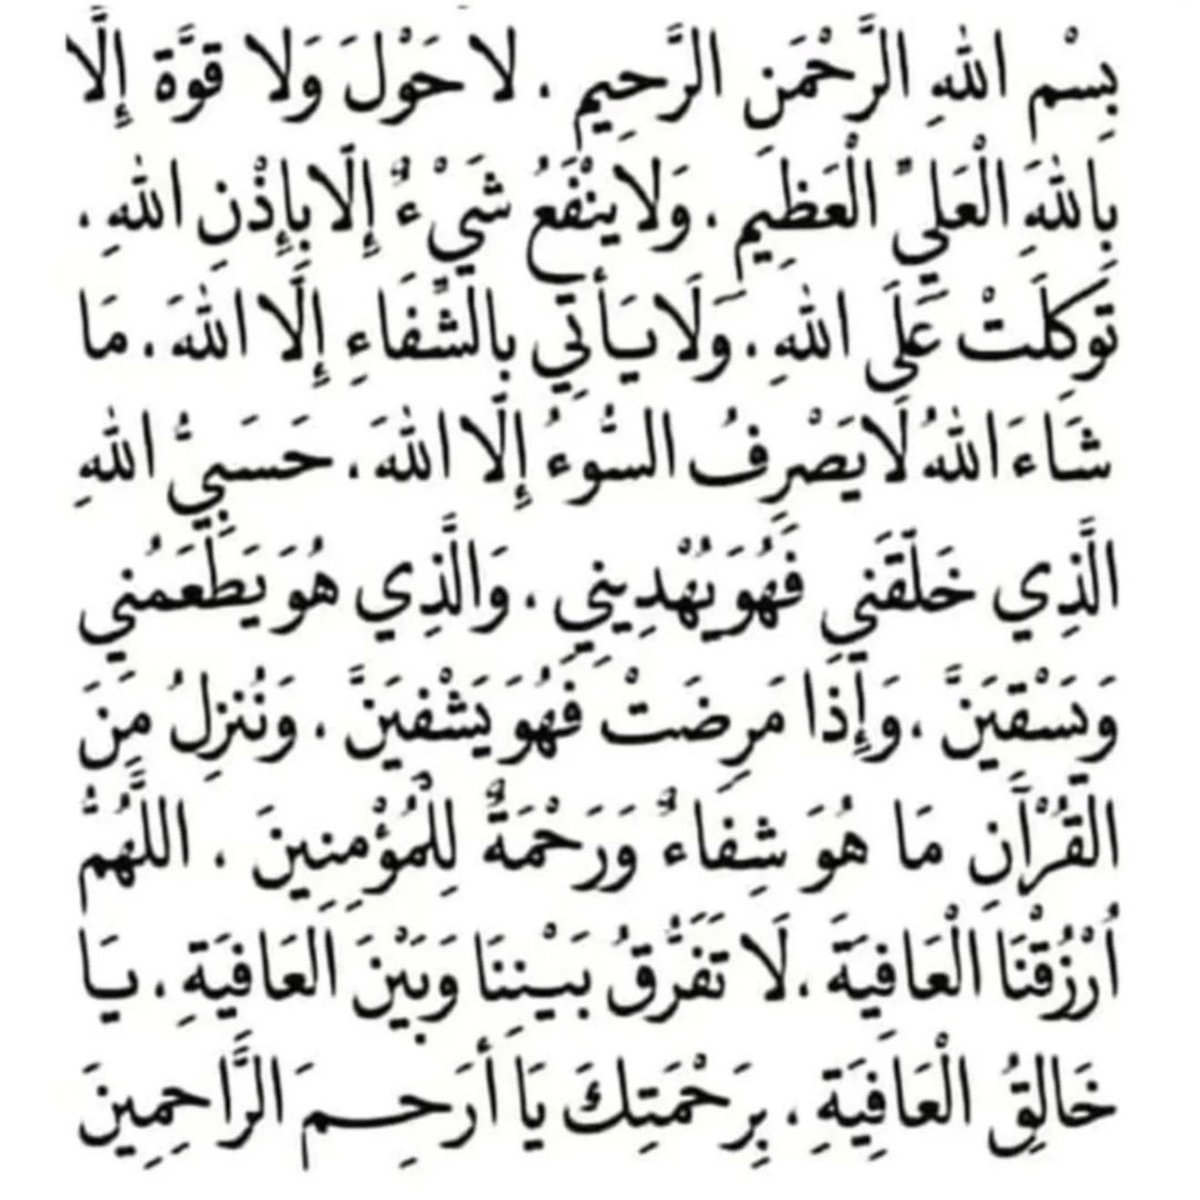 بِسْمِ اللهِ الرَّحْمَنِ الرَّحِيمِ ، لاَ حَوْلَ وَلاَ قوَّة إِلَّا
بِاللهَِ الْعَلِيِّ الْعَظِيمِ ، وَلاَ ينْفَعُ شَيْءٌ إِلَّا بِإِذْنِ اللهِ ،
تَوَكِلَتْ عَلَى اللهِ ، وَلَا يَأتِي بِالشِّفَاءِ إِلَّا اللهَ ، مَا
شَاءَ اللهُ لَا يَصْرِفُ السُّوءُ إِلَّا اللهَ ، حَسَبِيُّ اللهِ
الَّذِي خَلَّقَنِي فَهُوَ يُهْدِينِي ، وَالَّذِي هُوَ يَطَعَمُنِي
وَيَسْقِيَنَّ ، وَإِذَا مَرِضَتْ فَهُوَ يَشْفِيَنَّ ، وَنُنزِلُ مِنَ
الْقُرْآنِ مَا هُوَ شِفَاءٌ وَرَحْمَةٌ لِلْمُؤْمِنِينَ ، اللَّهُمُّ
اُرْزُقْنَا الْعَافِيَةَ ، لَا تَفَرُّقُ بَيْنِنَا وَبَيْنَ العَافِيَةِ ، يَا
خَالِقُ الْعَافِيَةِ ، بِرَحْمَتِكَ يَا أَرَحِمَ الرَّاحِمِينَ